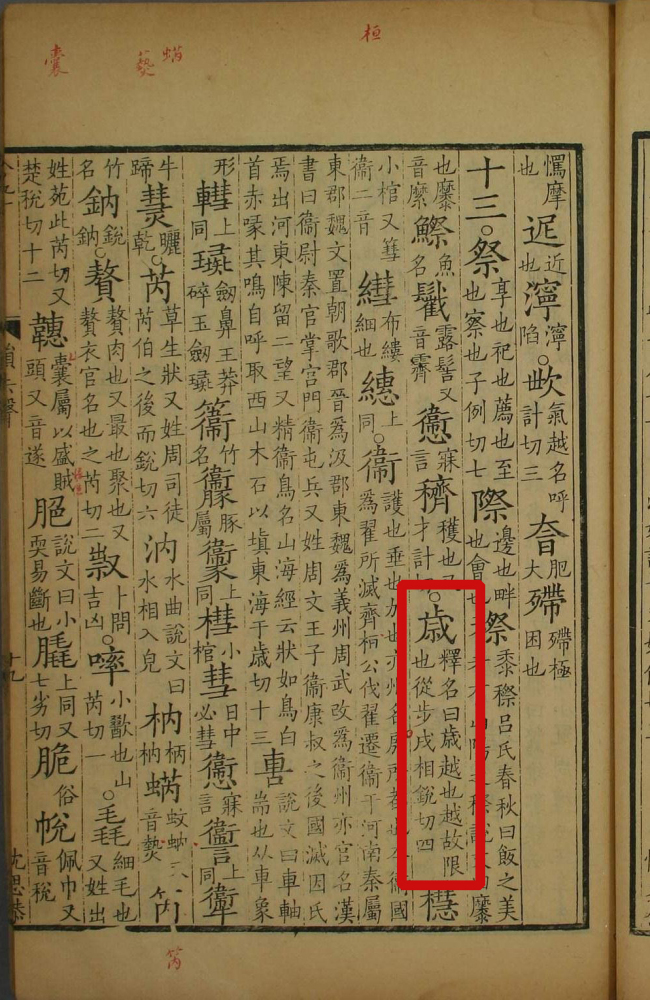 桓
藝
囊
懫摩也 迡近也 濘濘陷也 ○ 氣越名呼計切三 夻肥大 殢殢極困也
十三○祭享也祀也薦也至也察也子例切七 際邊也畔也會也 穄黍穄呂氏春秋曰飯之美
也䵖音縻 鰶魚名 露髻又音霽 寐言 穧穫也又才計切 ○歲釋名曰歲越也越故限也從步戌相銳切四 槥
小棺又篲衛二音 布縷細也 繐上同 ○衞護也垂也加也亦州名國爲翟所滅齊桓公伐翟遷衞于河南秦屬
東郡魏文置朝歌郡晉爲汲郡東魏爲義州周武改爲衞州亦官名漢
書曰衞尉秦官掌宮門衞屯兵又姓周文王子衞康叔之後國滅因氏
焉出河東陳留二望又精衞鳥名山海經云狀如烏白
首赤喙其鳴自呼取西山木石以塡東海于歲切十三 軎說文曰車軸耑也从車象
形 轊上同 璏劒鼻王莽碎玉劒璏 竹名 豚屬 上同 槥小棺 彗日中必彗 寐言 上同
牛蹄 曬乾 ○芮草生狀又姓周司徒芮伯之後而銳切六 汭水曲說文曰水相入皃 枘柄枘 蜹蚊蜹音爇
竹名 鈉銳鈉 ○贅贅肉也又最也聚也又贅衣官名也之芮切二 卜問吉凶 ○啐小歠也山芮切一 ○毳細毛也又姓出
姓苑此芮切又楚稅切十二 囊屬以盛賊頭又音遂 脃說文曰小耎易斷也 膬上同又七劣切 脆俗 帨佩巾又音稅